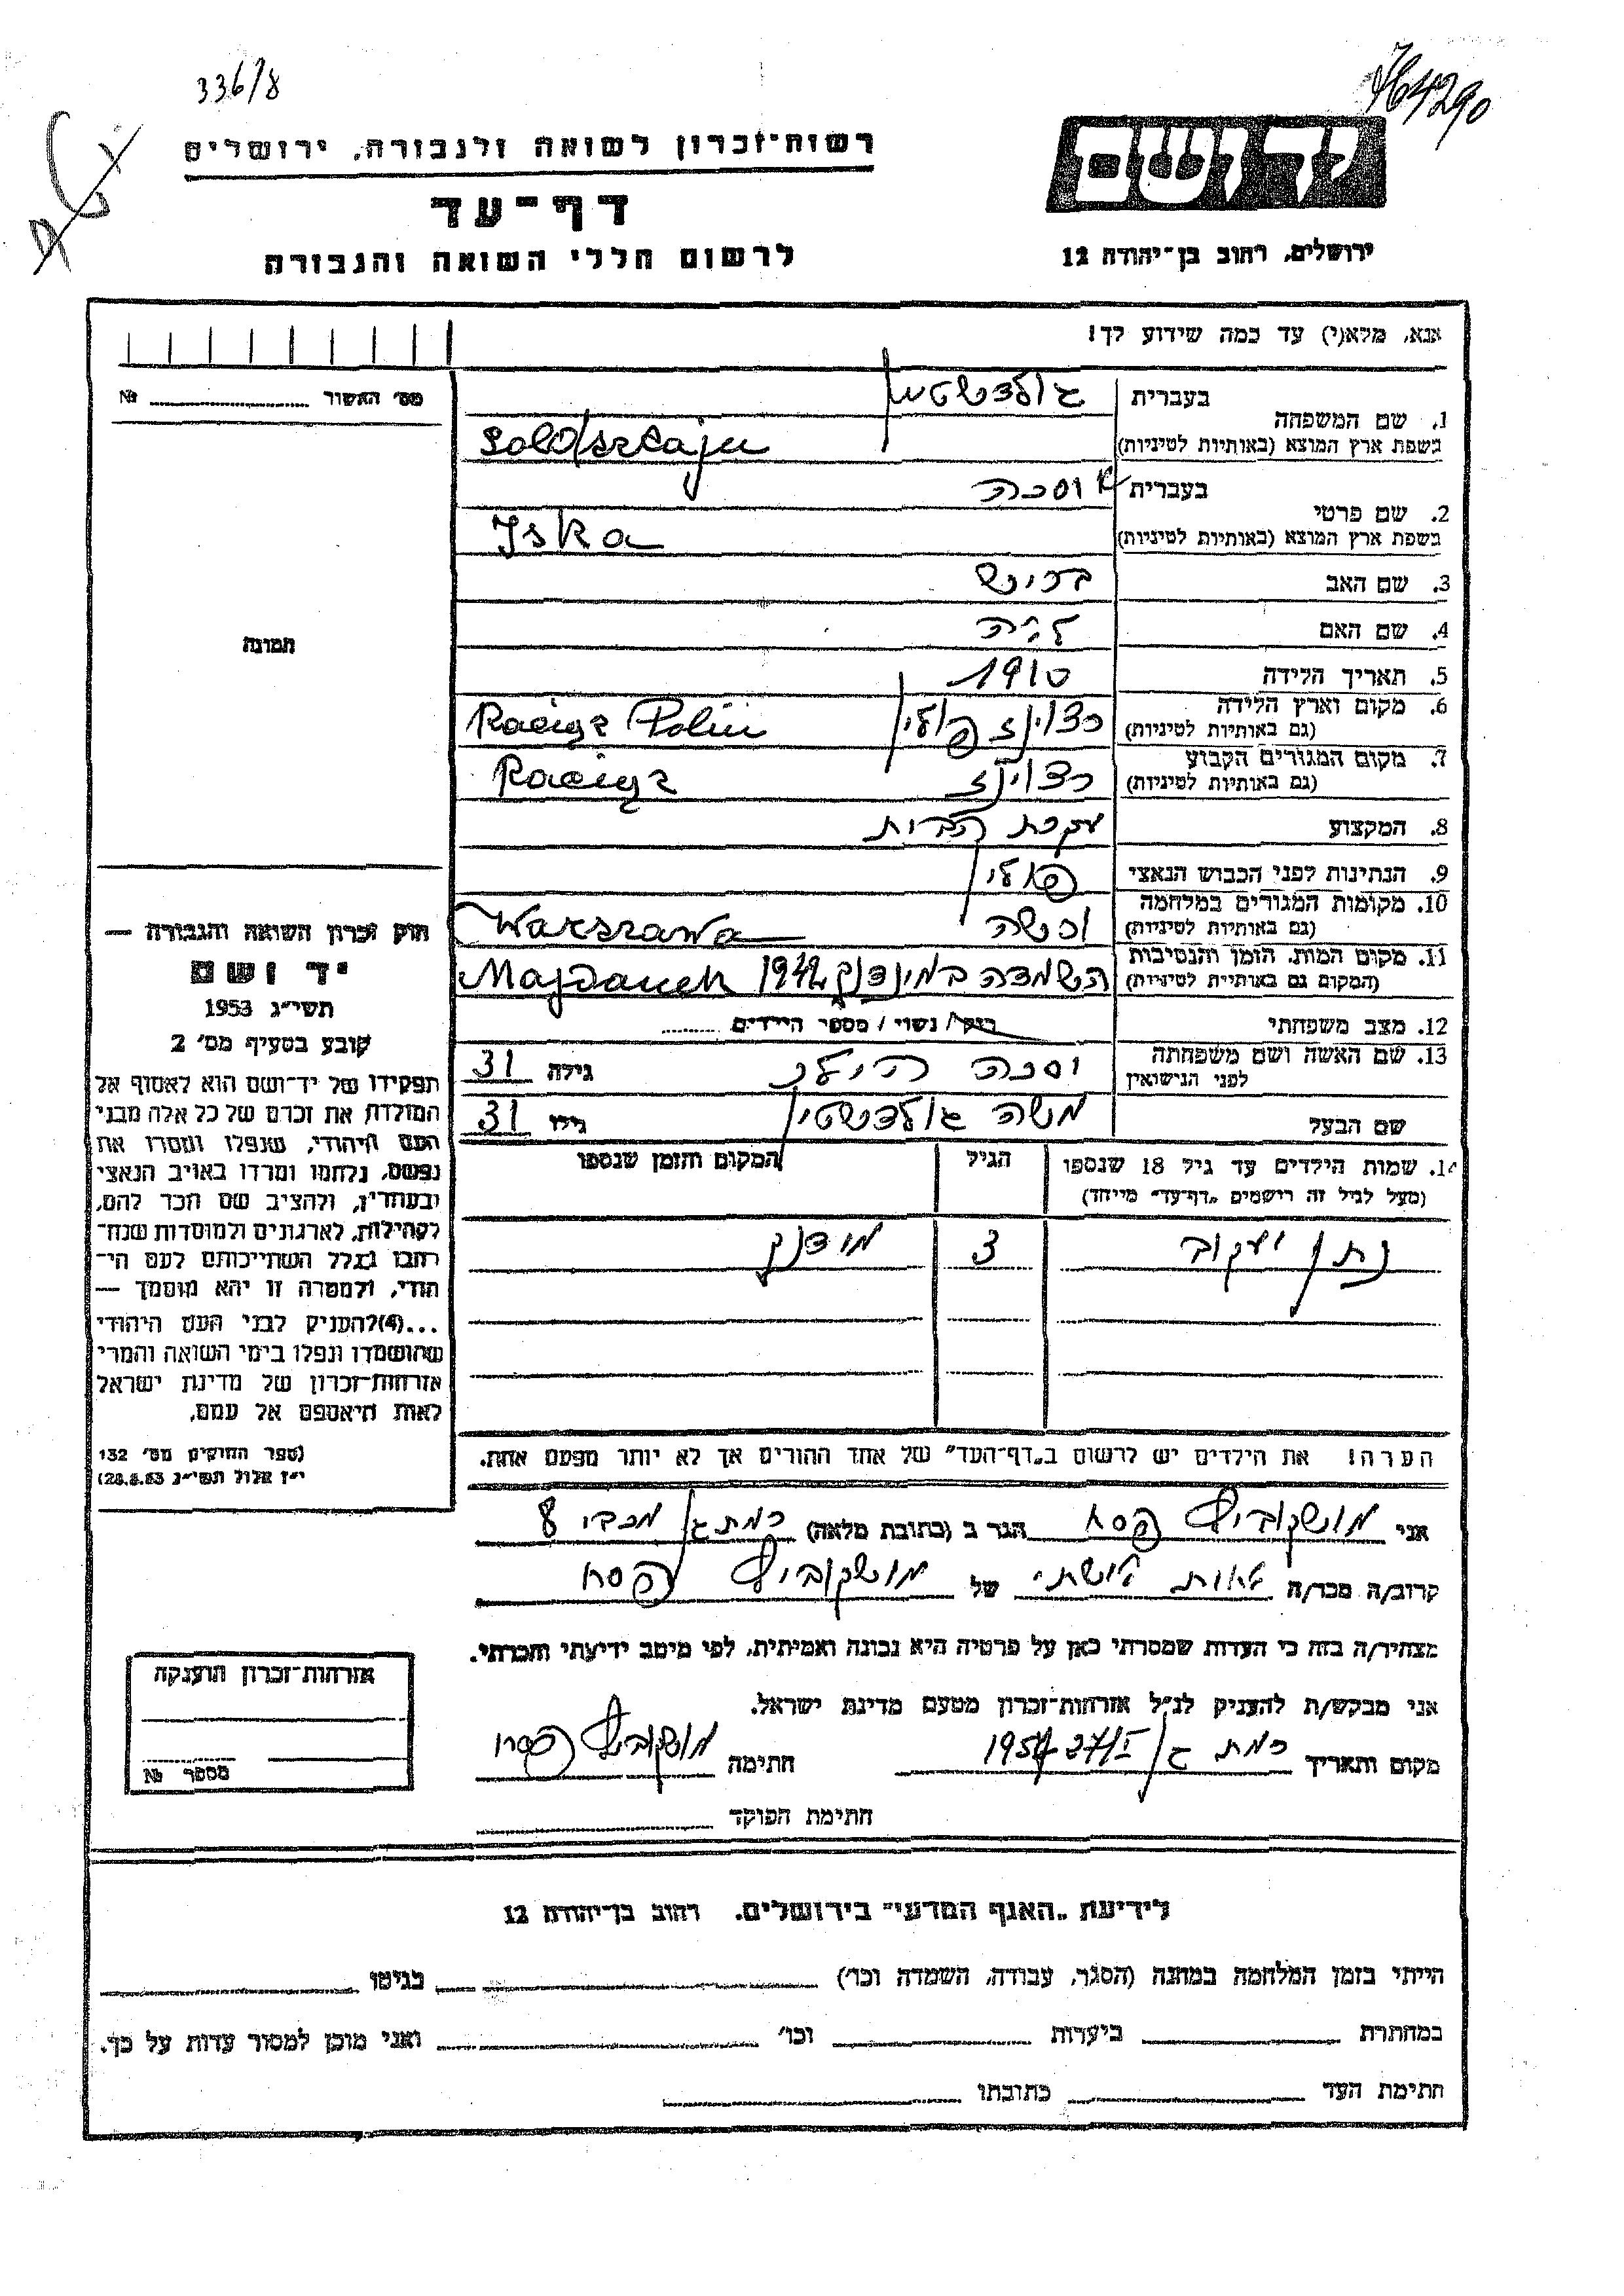 336/8
764290
רשות־זכרון לשואה ולגבורה, ירושלים
דף־עד
לרשום חללי השואה והגבורה
ידושם
ירושלים, רחוב בן־יהודה 12
אנא, מלא(י) עד כמה שידוע לך!
מס' האשור № 
1. שם המשפחה בעברית גולדשטיין
בשפת ארץ המוצא (באותיות לטיניות) Goldsztajn
2. שם פרטי בעברית יוסכה
בשפת ארץ המוצא (באותיות לטיניות) Jska
3. שם האב ברוש
4. שם האם לאה
5. תאריך הלידה 1910
6. מקום וארץ הלידה (גם באותיות לטיניות) רצוינז פולין Raciąz Polin
7. מקום המגורים הקבוע (גם באותיות לטיניות) רצוינז Raciąz
8. המקצוע עקרת הבית
9. הנתינות לפני הכבוש הנאצי פולין
10. מקומות המגורים במלחמה (גם באותיות לטיניות) ורשה Warszawa
11. מקום המות, הזמן והנסיבות (המקום גם באותיות לטיניות) השמדה במידנק 1942 Majdanek
12. מצב משפחתי רוק/ נשוי / מספר הילדים
13. שם האשה ושם משפחתה לפני הנישואין יוסכה גילה 31
שם הבעל משה גולדשטיין גילו 31
תמונה
14. שמות הילדים עד גיל 18 שנספו
(מעל לגיל זה רישמים "דף־עד" מייחד)
הגיל
המקום והזמן שנספו
נתן יעקוב 3 מידנק
הערה! את הילדים יש לרשום ב"דף־העד" של אחד ההורים אך לא יותר מפעם אחת.
חוק זכרון השואה והגבורה —
יד ושם
תשי״ג 1953
קובע בסעיף מס' 2
תפקידו של יד־ושם הוא לאסוף אל
המולדת את זכרם של כל אלה מבני
העם היהודי, שנפלו ומסרו את
נפשם, נלחמו ומרדו באויב הנאצי
ובעוזריו, ולהציב שם וזכר להם,
לקהילות, לארגונים ולמוסדות שנח־
רבו בגלל השתייכותם לעם הי־
הודי, ולמטרה זו יהא מוסמך —
...(4)להעניק לבני העם היהודי
שהושמדו ונפלו בימי השואה והמרי
אזרחות־זכרון של מדינת ישראל
לאות היאספם אל עמם.
(ספר החוקים מס' 132
י״ז אלול תשי״ג 28.8.53)
אני מושקוביץ פסח הגר ב (כתובת מלאה) רמת גן מכבי 8
קרוב/ה מכר/ה של מושקוביץ פסח
מצהיר/ה בזה כי העדות שמסרתי כאן על פרטיה היא נכונה ואמיתית, לפי מיטב ידיעתי והכרתי.
אני מבקש/ת להעניק לנ״ל אזרחות־זכרון מטעם מדינת ישראל.
מקום ותאריך רמת גן 27/I 1954 חתימה מושקוביץ פסח
חתימת הפוקד
אזרחות־זכרון הוענקה
מספר №
לידיעת "האגף המדעי" בירושלים. רחוב בן־יהודה 12
הייתי בזמן המלחמה במחנה (הסגר, עבודה, השמדה וכו') בגיטו
במחתרת ביערות וכו' ואני מוכן למסור עדות על כך.
חתימת העד כתובתו